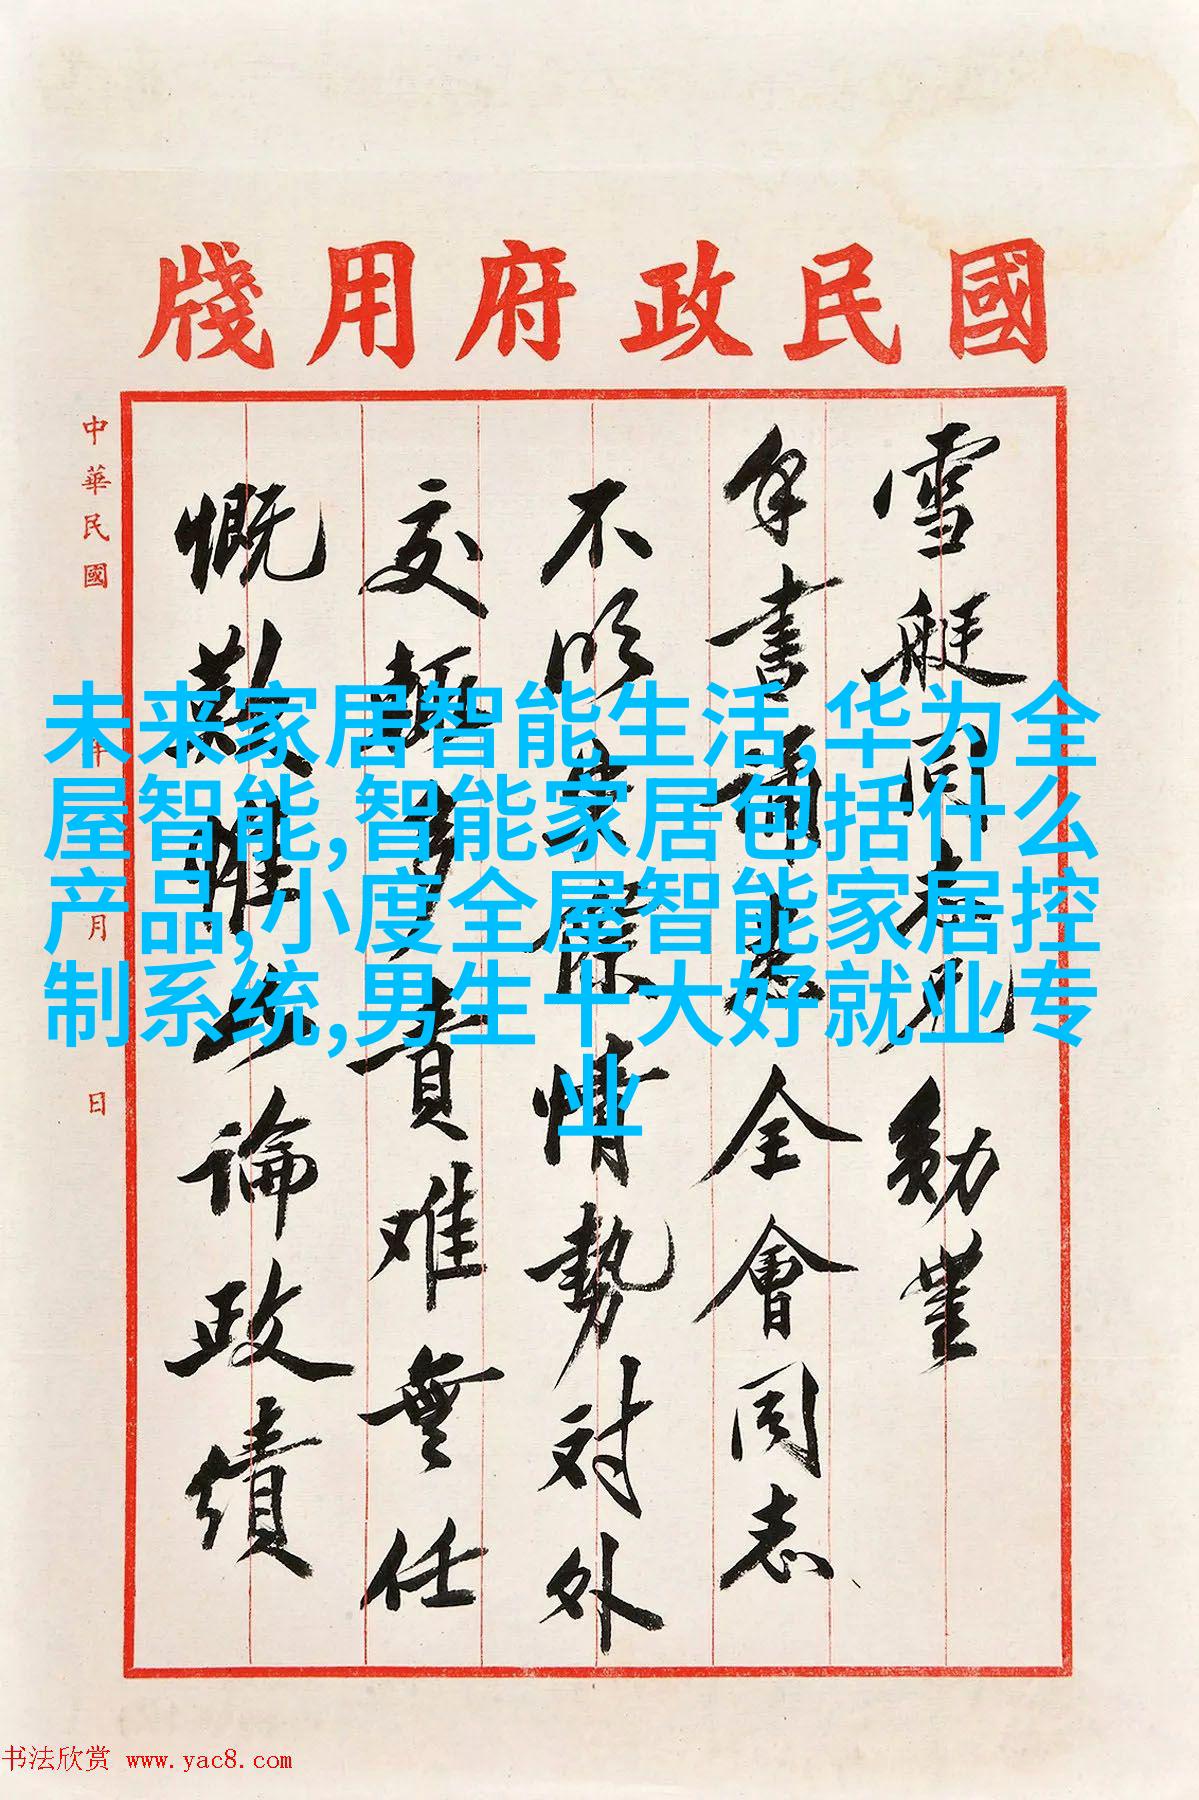 國民政府用牋
雪艇同志兄勛
手書誦悉全會同志
不明實際情勢对外
交輒多責难無任
慨歎惟以論政績
中華民國 年 月 日
未来家居智能生活,华为全
屋智能,智能家居包括什么
产品,小度全屋智能家居控
制系统,男生十大好就业专
业
书法欣赏 www.yac8.com